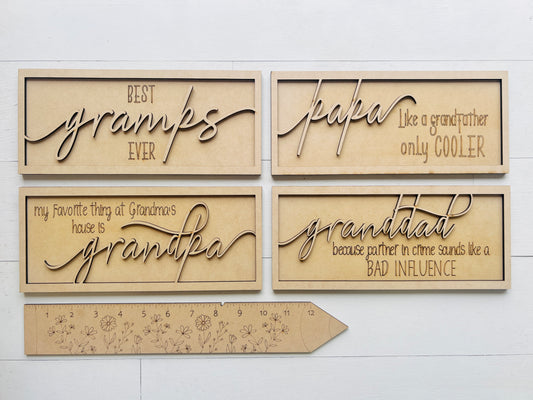 BEST
gramps
EVER
papa
Like a grandfather
only COOLER
my favorite thing at Grandma's
house is
grandpa
granddad
because partner in crime sounds like a
BAD INFLUENCE
1 2 3 4 5 6 7 8 9 10 11 12